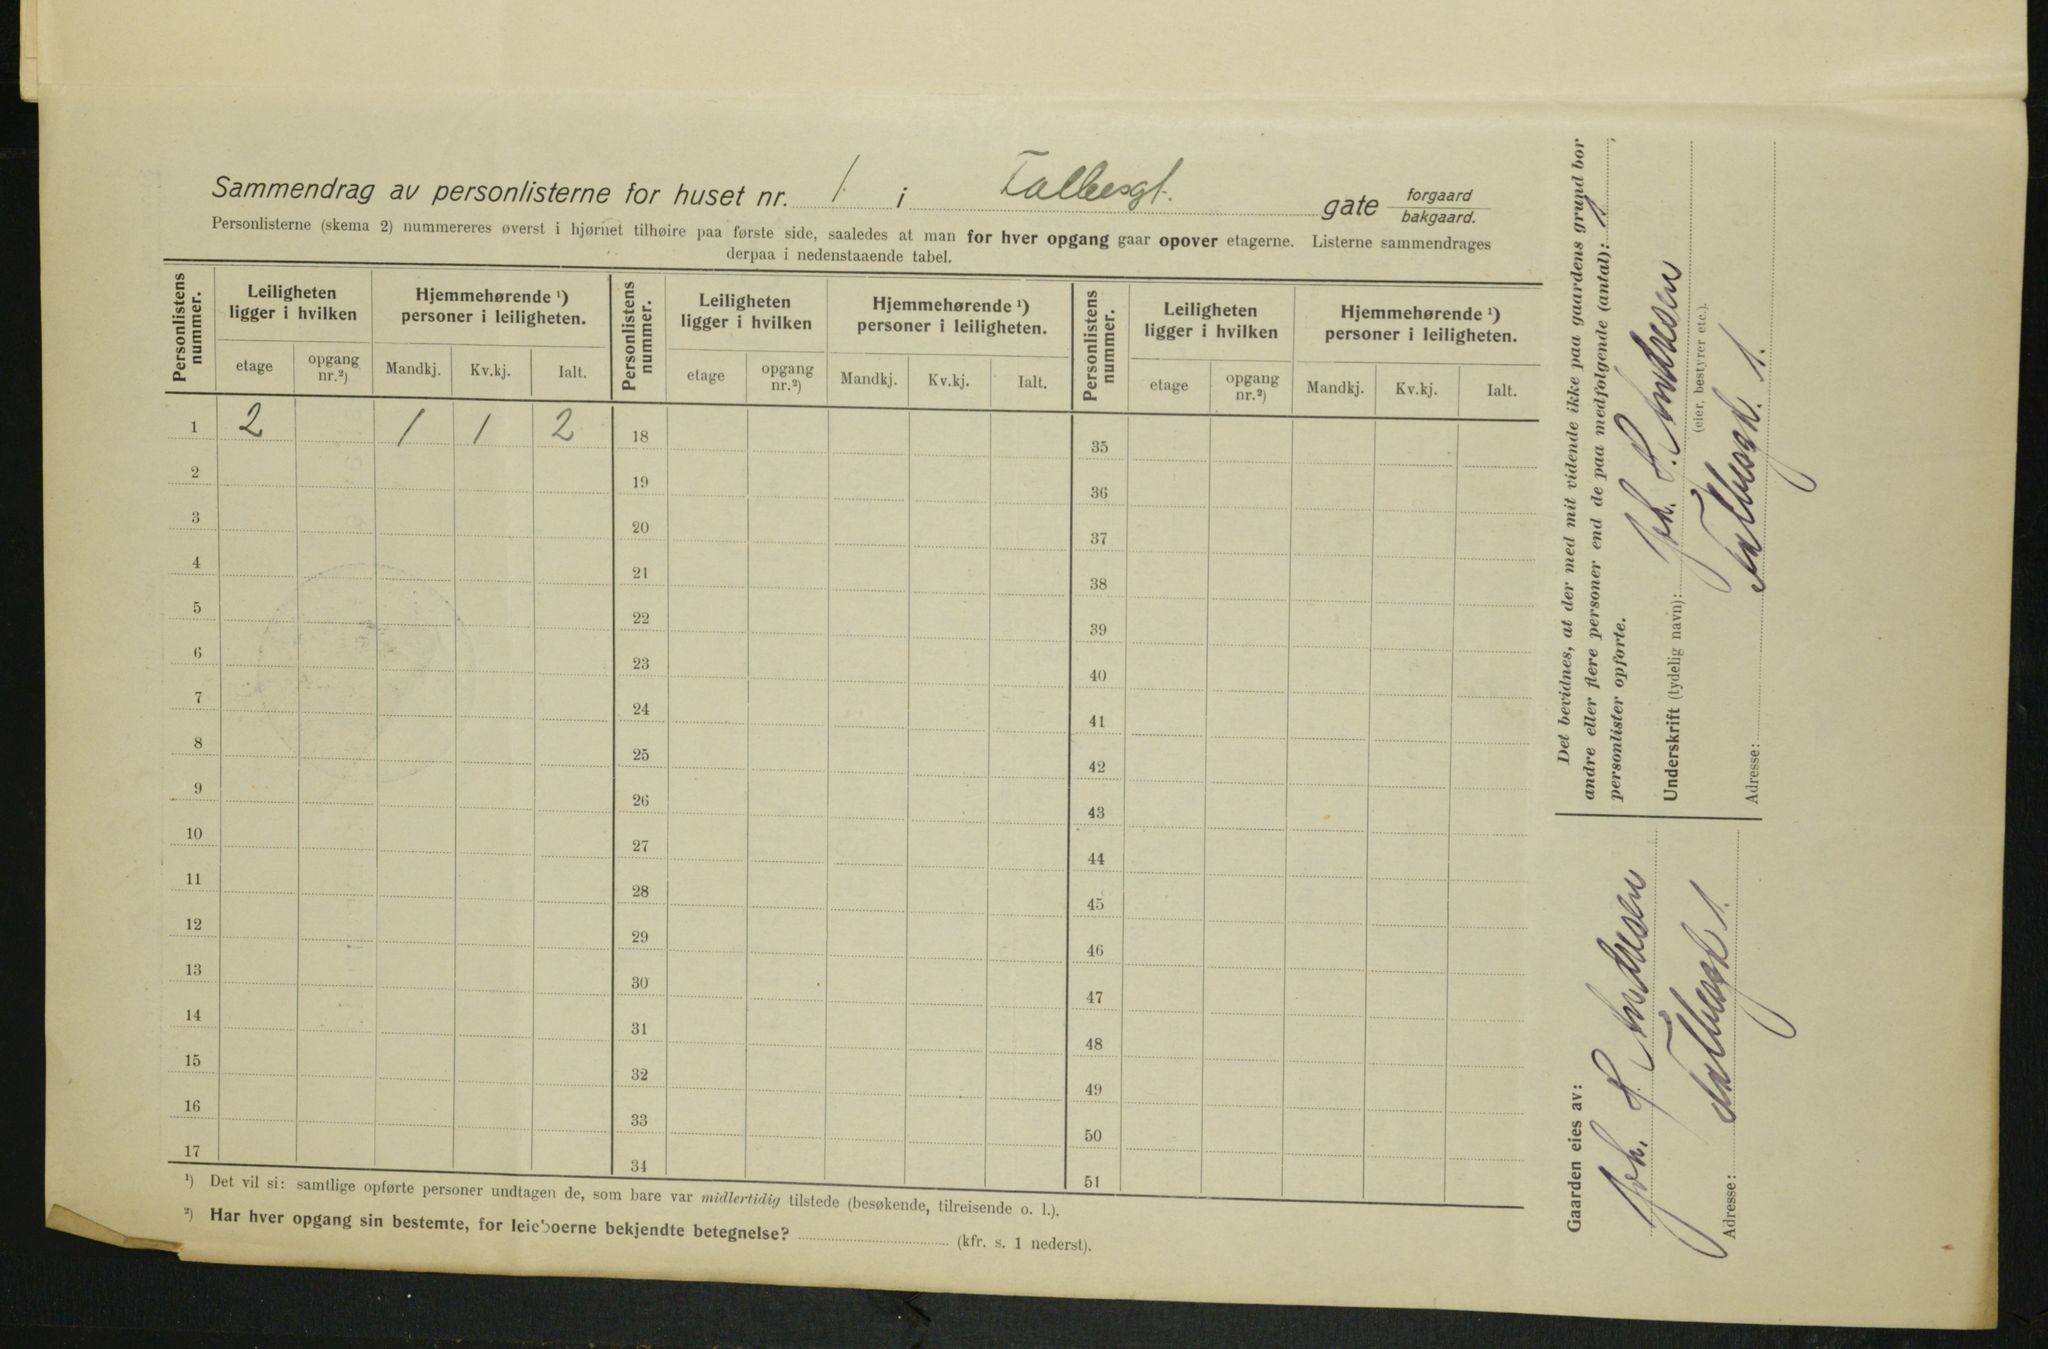 Sammendrag av personlisterne for huset nr. 1. i Falbesgt. gate forgaard
bakgaard.
Personlisterne (skema 2) nummereres øverst i hjørnet tilhøire paa første side, saaledes at man for hver opgang gaar opover etagerne. Listerne sammendrages
derpaa i nedenstaaende tabel.
Personlistens nummer. Leiligheten ligger i hvilken Hjemmehørende ¹) personer i leiligheten. Personlistens nummer. Leiligheten ligger i hvilken Hjemmehørende ¹) personer i leiligheten. Personlistens nummer. Leiligheten ligger i hvilken Hjemmehørende ¹) personer i leiligheten.
etage opgang nr.²) Mandkj. Kv.kj. Ialt. etage opgang nr.²) Mandkj. Kv.kj. Ialt. etage opgang nr.²) Mandkj. Kv.kj. Ialt.
1 2 1 1 2 18 35
2 19 36
3 20 37
4 21 38
5 22 39
6 23 40
7 24 41
8 25 42
9 26 43
10 27 44
11 28 45
12 29 46
13 30 47
14 31 48
15 32 49
16 33 50
17 34 51
¹) Det vil si: samtlige opførte personer undtagen de, som bare var midlertidig tilstede (besøkende, tilreisende o. l.).
²) Har hver opgang sin bestemte, for leieboerne bekjendte betegnelse? (kfr. s. 1 nederst).
Det bevidnes, at der med mit vidende ikke paa gaardens grund bor
andre eller flere personer end de paa medfolgende (antal): 1,
personlister opforte.
Underskrift (tydelig navn): Joh. P. Andresen
(eier, bestyrer etc.).
Adresse: Falbesgt. 1.
Gaarden eies av:
Joh. P. Andresen
Adresse: Falbesgt 1.